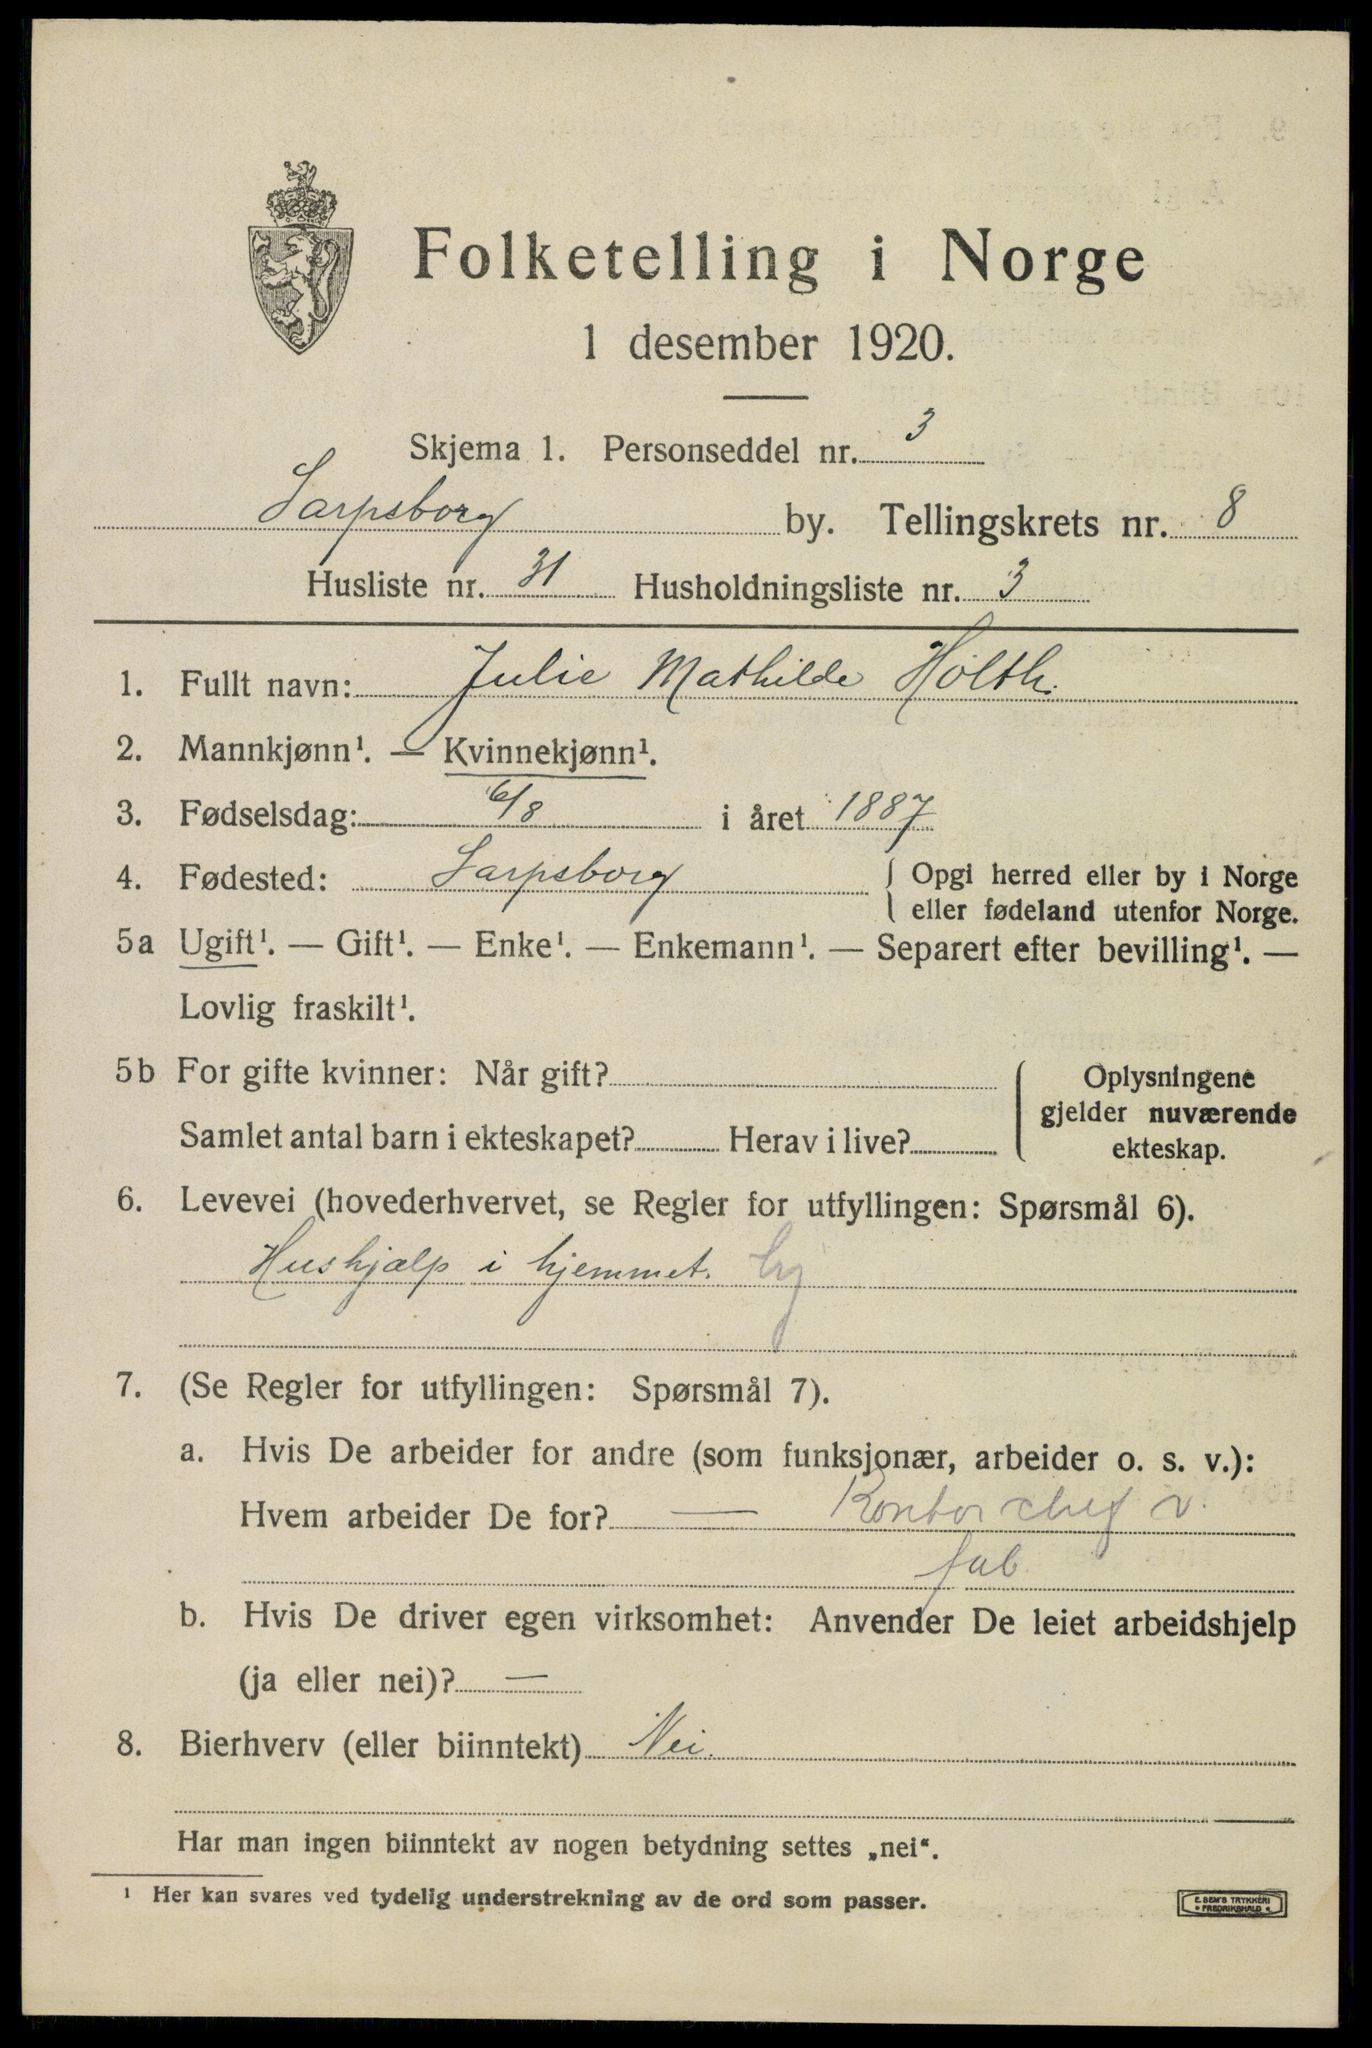 Folketelling i Norge
1 desember 1920.
Skjema 1. Personseddel nr. 3
Sarpsborg by. Tellingskrets nr. 8
Husliste nr. 31 Husholdningsliste nr. 3
1. Fullt navn: Julie Mathilde Holth.
2. Mannkjønn¹. — Kvinnekjønn¹.
3. Fødselsdag: 6/8 i året 1887
4. Fødested: Sarpsborg { Opgi herred eller by i Norge
eller fødeland utenfor Norge.
5a Ugift¹. — Gift¹. — Enke¹. — Enkemann¹. — Separert efter bevilling¹. —
Lovlig fraskilt¹.
5b For gifte kvinner: Når gift? { Oplysningene
gjelder nuværende
Samlet antal barn i ekteskapet? Herav i live?
ekteskap.
6. Levevei (hovederhvervet, se Regler for utfyllingen: Spørsmål 6).
Hushjælp i hjemmet.
7. (Se Regler for utfyllingen: Spørsmål 7).
a. Hvis De arbeider for andre (som funksjonær, arbeider o. s. v.):
Hvem arbeider De for? — Kontorchef v.
fab.
b. Hvis De driver egen virksomhet: Anvender De leiet arbeidshjelp
(ja eller nei)? —
8. Bierhverv (eller biinntekt) Nei.
Har man ingen biinntekt av nogen betydning settes „nei“.
¹ Her kan svares ved tydelig understrekning av de ord som passer.
E. SEM'S TRYKKERI
FREDRIKSHALD